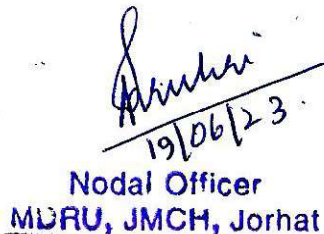 19/06/23.
Nodal Officer
MDRU, JMCH, Jorhat